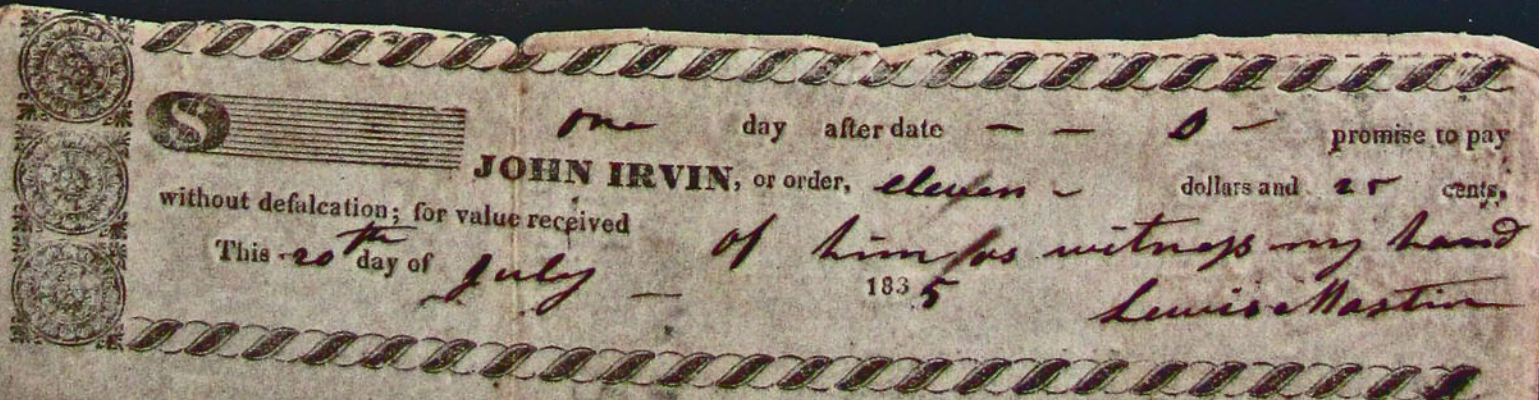 $ one day after date - - I - promise to pay
JOHN IRVIN, or order, eleven - dollars and 25 cents,
without defalcation; for value received of him as witness my hand
This 20th day of July - 1835 Lewis Mastin